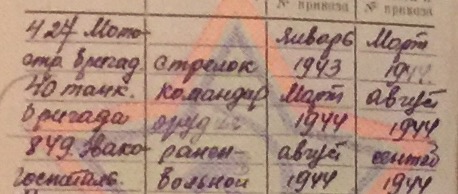 № приказа № приказа
427 Мото Январь Март
стр бригад стрелок 1943 1944
40 танк. командир Март август
бригада орудия 1944 1944
849 Эвако ранен август сентяб
госпиталь больной 1944 1944